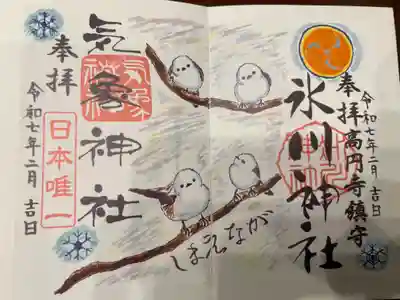 奉拝 高円寺鎮守
令和七年二月吉日
氷川神社
しまえなが
気象神社
奉拝
日本唯一
令和七年二月 吉日